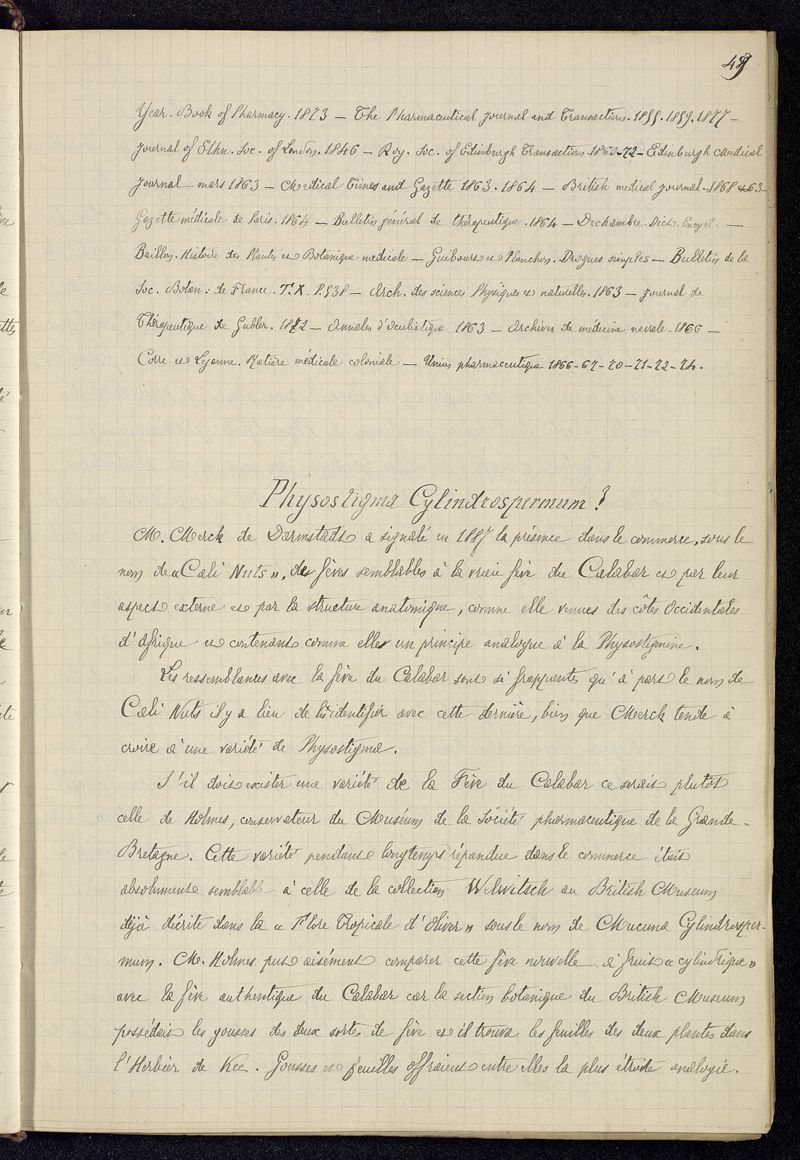 49
Year-Book of Pharmacy. 1873 — The Pharmaceutical Journal and Transactions. 1855. 1859. 1877 —
Journal of Ethn. Soc. of London. 1846 — Roy. Soc. of Edinburgh Transactions 72 — Edinburgh Medical
Journal mars 1863 — Medical Times and Gazette 1863. 1864 — British medical journal. 1868 63 —
Gazette médicale de Paris. 1864 — Bulletin général de thérapeutique. 1864 — Dechambre. Dict. Encycl. —
Baillon. Histoire des Plantes et Botanique médicale — Guibourt et Planchon. Drogues simples — Bulletin de la
Soc. Botan: de France. T. X. P. 538 — Arch. des sciences Physiques et naturelles. 1863 — Journal de
Thérapeutique de Gubler. — Annales d'oculistique 1863 — Archives de médecine navale. 1866 —
Corre et Lejanne. Matière médicale coloniale — Union pharmaceutique 1866-67-70-71-72-74.
Physostigma Cylindrospermum ?
M. Merck de Darmstadt a signalé en 1887 la présence dans le commerce, sous le
nom de « Cali Nuts », des fèves semblables à la vraie fève du Calabar et par leur
aspect externe et par la structure anatomique, comme elle venues des côtes Occidentales
d'Afrique et contenant comme elle un principe analogue à la Physostigmine.
Les ressemblances avec la fève du Calabar sont si frappantes qu'à part le nom de
Cali Nuts il y a lieu de l'identifier avec cette dernière, bien que Merck tende à
croire à une variété de Physostigma.
S'il doit exister une variété de la Fève du Calabar ce serait plutot
celle de Holmes, conservateur du Muséum de la Société pharmaceutique de la Grande-
Bretagne. Cette variété pendant longtemps répandue dans le commerce était
absolument semblabl à celle de la collection Welwitsch au British Museum
déjà décrite dans la « Flore Tropicale d'Oliver » sous le nom de Mucuna Cylindrosper-
mum. M. Holmes put aisément comparer cette fève nouvelle à fruit « cylindrique »
avec la fève authentique du Calabar car la section botanique du British Museum
possédait les gousses des deux sortes de fève et il trouva les feuilles des deux plantes dans
l'Herbier de Kee. Gousses et feuilles offraient entre elles la plus étroite analogie.